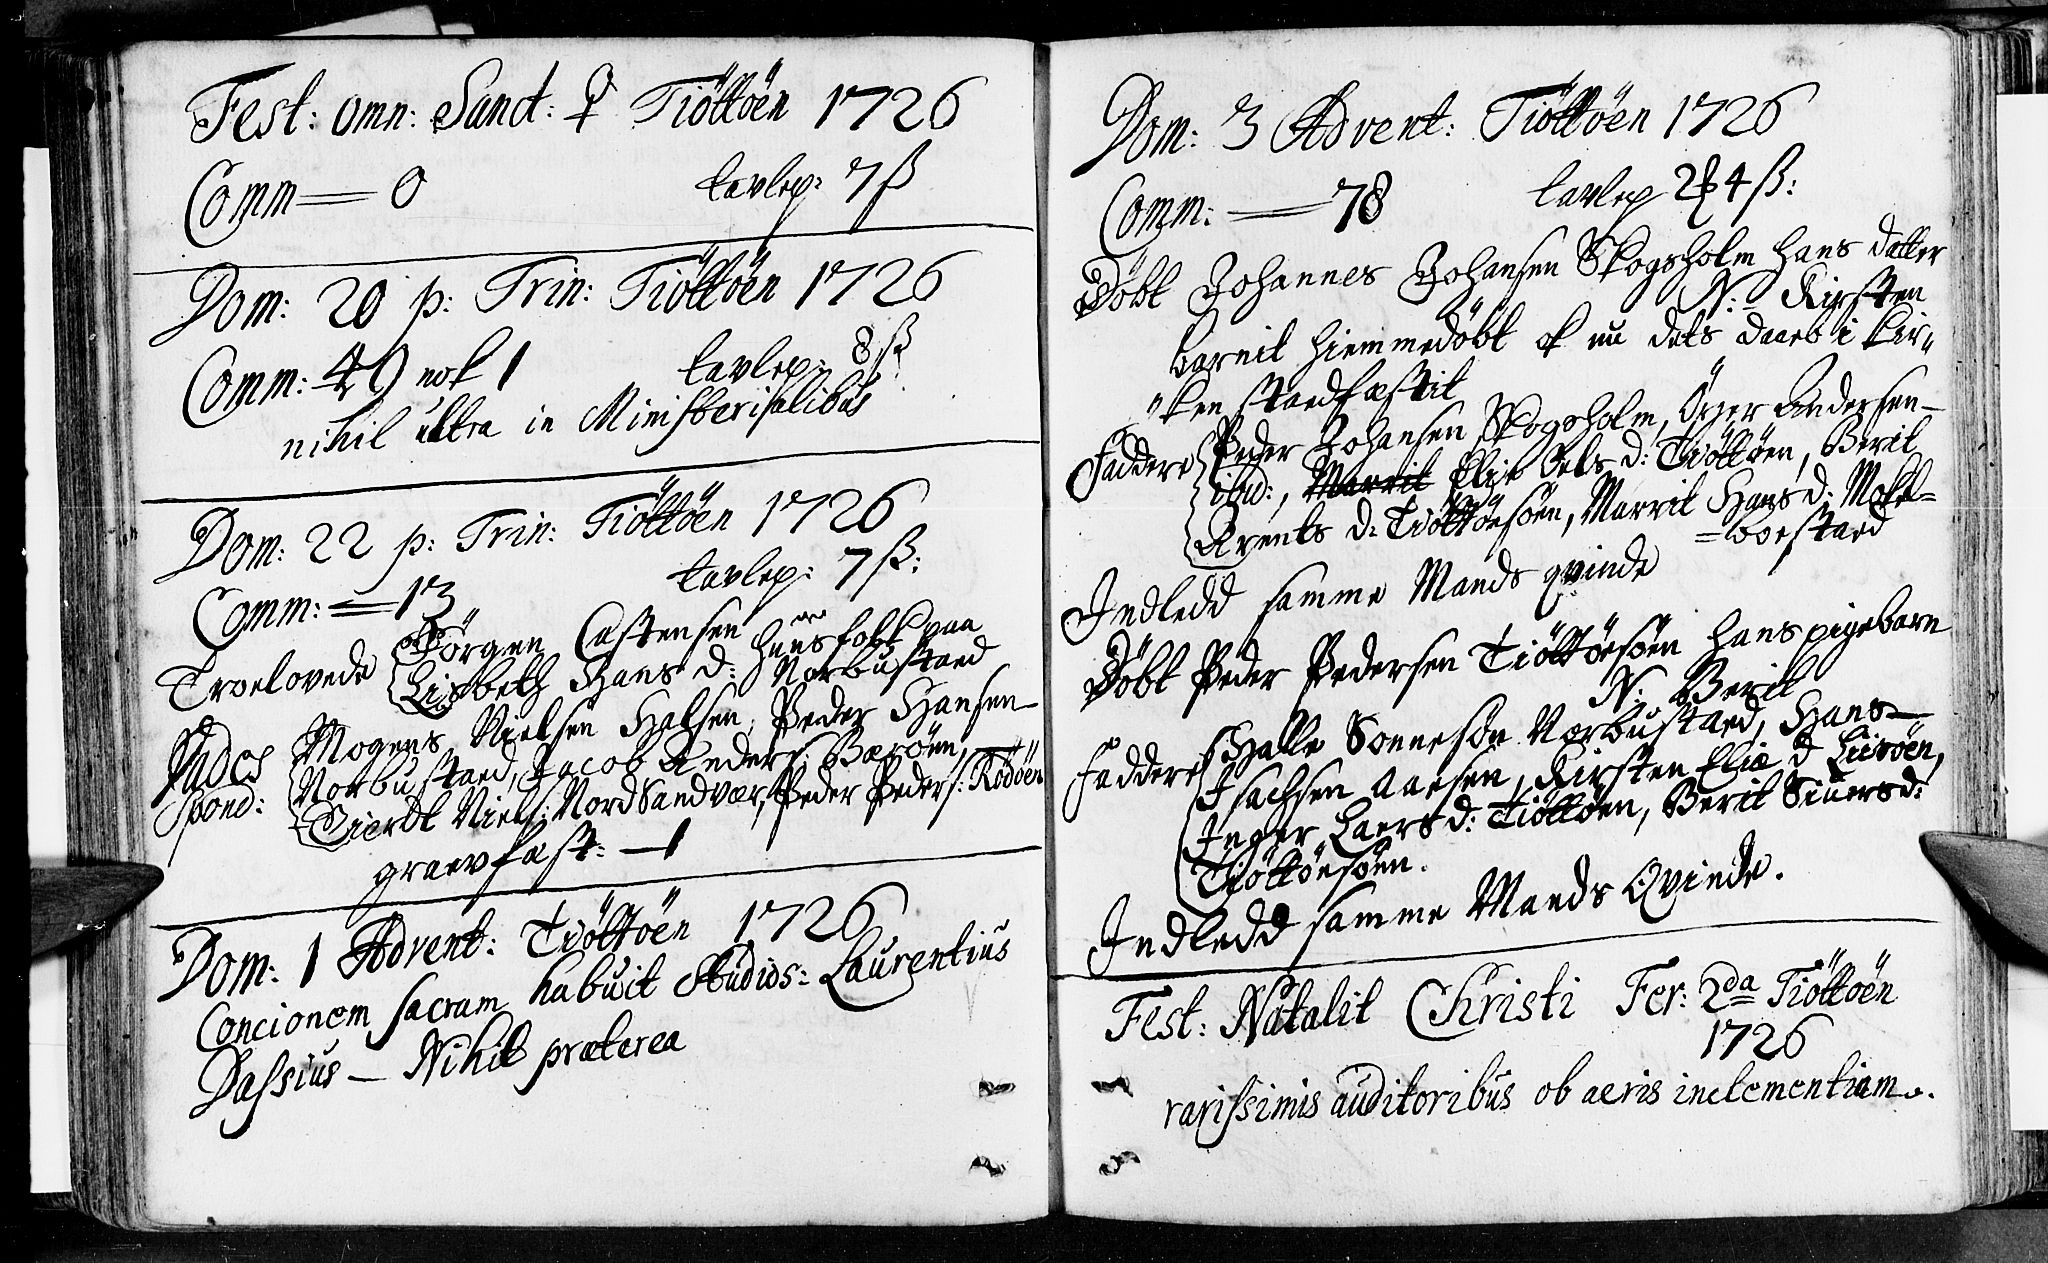 Fest: omn: Sanct: ♀ Tiöttöen 1726
Comm = 0 tavlep: 7 ß
Dom: 20 p: Trin: Tiöttöen 1726
Comm: 49 nok 1 tavlep: 8 ß
nihil ultra in Ministerialibus
Dom: 22 p: Trin: Tiöttöen 1726
Comm: = 13 tavlep: 7 ß:
Troelovede Jörgen Castensen
Lisbeth Hans d: huusfolk paa Norbustaed
Fidei Mogens Nielsen Halsen, Peder Hansen
spond: Norbustaed, Jacob Anders: Bæröen,
Sierdt Niels: Nord Sandvær, Peder Peders: Rödöen
graevfæst: — 1
Dom: 1 Advent: Tiöttöen 1726
Concionem sacram habuit Studios: Laurentius
Dassius — Nihil præterea
Dom: 3 Advent: Tiöttöen 1726
Comm: = 78 tavlep 2 4 ß:
Döbt Johannes Johansen Skogsholm hans datter
N: Kirsten
barnit hiemmedöbt og nu dets daab i kir"
"ken stadfæstit
Faddere Peder Johansen Skogsholm, Andersen
ibid:, Marrit Elie Oels d: Tiöttöen, Berit
Arents d: Tiöttöesöen, Marrit Hans d: Mokel=
=boestaed
Indledd samme Mands qvinde
Döbt Peder Pedersen Tiöttöesöen hans pigebarn
N: Berit
Faddere Halle Sonnesön Norbustaed, Hans
Isachsen Aaesen, Kirsten Elie d
Inger Laers d: Tiöttöen, Berit Siuers d:
Tiöttöesöen.
Indledd samme Mands Qvinde.
Fest: Natalit Christi Fer: 2da Tiöttöen
1726
rarissimis auditoribus ob aeris inclementiam.